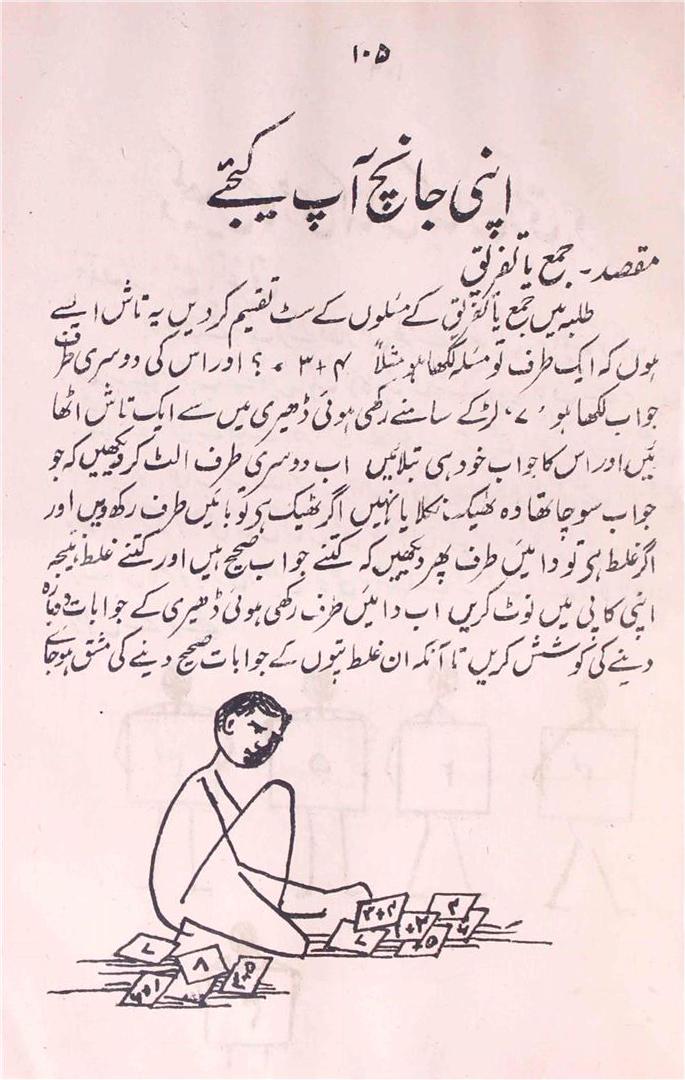 ۱۰۵
اپنی جانچ آپ کیجئے
مقصد۔ جمع یا تفریق
طلبہ میں جمع یا تفریق کے مسئلوں کے سٹ تقسیم کر دیں یہ تاش ایسے
ہوں کہ ایک طرف تو مسئلہ لکھا ہو مثلاً ۴+۳ = ؟ اور اس کی دوسری طرف
جواب لکھا ہو ’۷‘ لڑکے سامنے رکھی ہوئی ڈھیری میں سے ایک تاش اٹھا
ئیں اور اس کا جواب خود ہی بتلائیں اب دوسری طرف الٹ کر دیکھیں کہ جو
جواب سوچا تھا وہ ٹھیک نکلا یا نہیں اگر ٹھیک ہی تو بائیں طرف رکھ دیں اور
اگر غلط ہی تو دائیں طرف پھر دیکھیں کہ کتنے جواب صحیح ہیں اور کتنے غلط نتیجہ
اپنی کاپی میں نوٹ کریں اب دائیں طرف رکھی ہوئی ڈھیری کے جوابات دوبارہ
دینے کی کوشش کریں تا آنکہ ان غلط پتوں کے جوابات صحیح دینے کی مشق ہو جائے
۳+۴
۳
+۳
۷
+۵
۷
۸